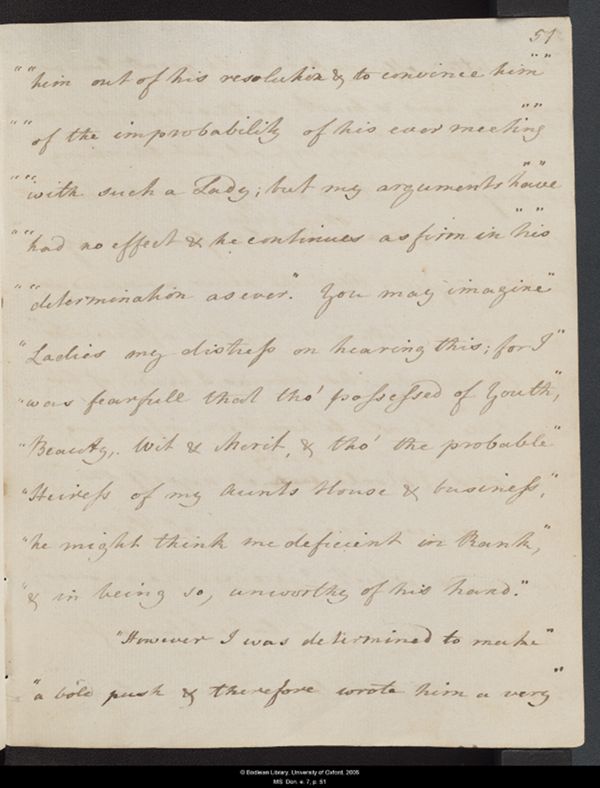 51
" "him out of his resolution & to convince him" "
" "of the improbability of his ever meeting" "
" "with such a Lady; but my arguments have" "
" "had no effect & he continues as firm in his" "
" "determination as ever." You may imagine"
"Ladies my distress on hearing this; for I"
"was fearfull that tho' possessed of Youth,"
"Beauty, Wit & Merit, & tho' the probable"
"Heiress of my Aunts House & business,"
"he might think me deficient in Rank,"
"& in being so, unworthy of his hand."
"However I was determined to make"
"a bold push & therefore wrote him a very"
© Bodleian Library, University of Oxford, 2005
MS. Don. e. 7, p. 51